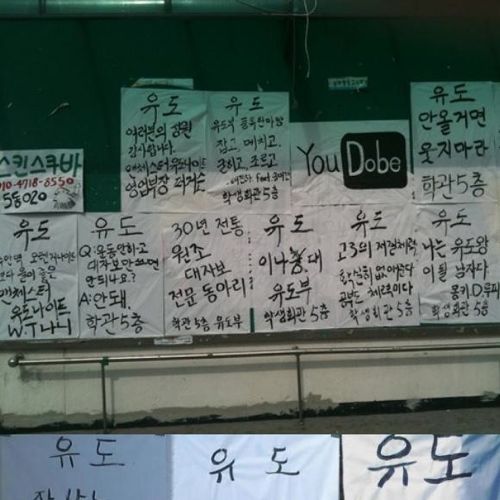 유도
여러분의 성원
감사합니다.
영업부장
유도
잡고. 메치고.
굳히고. 조르고
학생회관 5층
YouDobe
유도
안올거면
웃지마라
학관 5층
스킨스쿠바
010-4718-8550
5동 020
유도
유도나이트
유도
Q: 운동안하고
대자보만 쓰면
안되나요?
A: 안돼.
학관 5층
30년 전통
원조
대자보
전문 동아리
학관 5층 유도부
유도
이나홍대
유도부
학생회관 5층
유도
고3의 저질체력
공부도 체력이다
학생회관 5층
유도
나는 유도왕
이 될 남자다
몽키D루피
학생회관 5층
유도
유도
유도